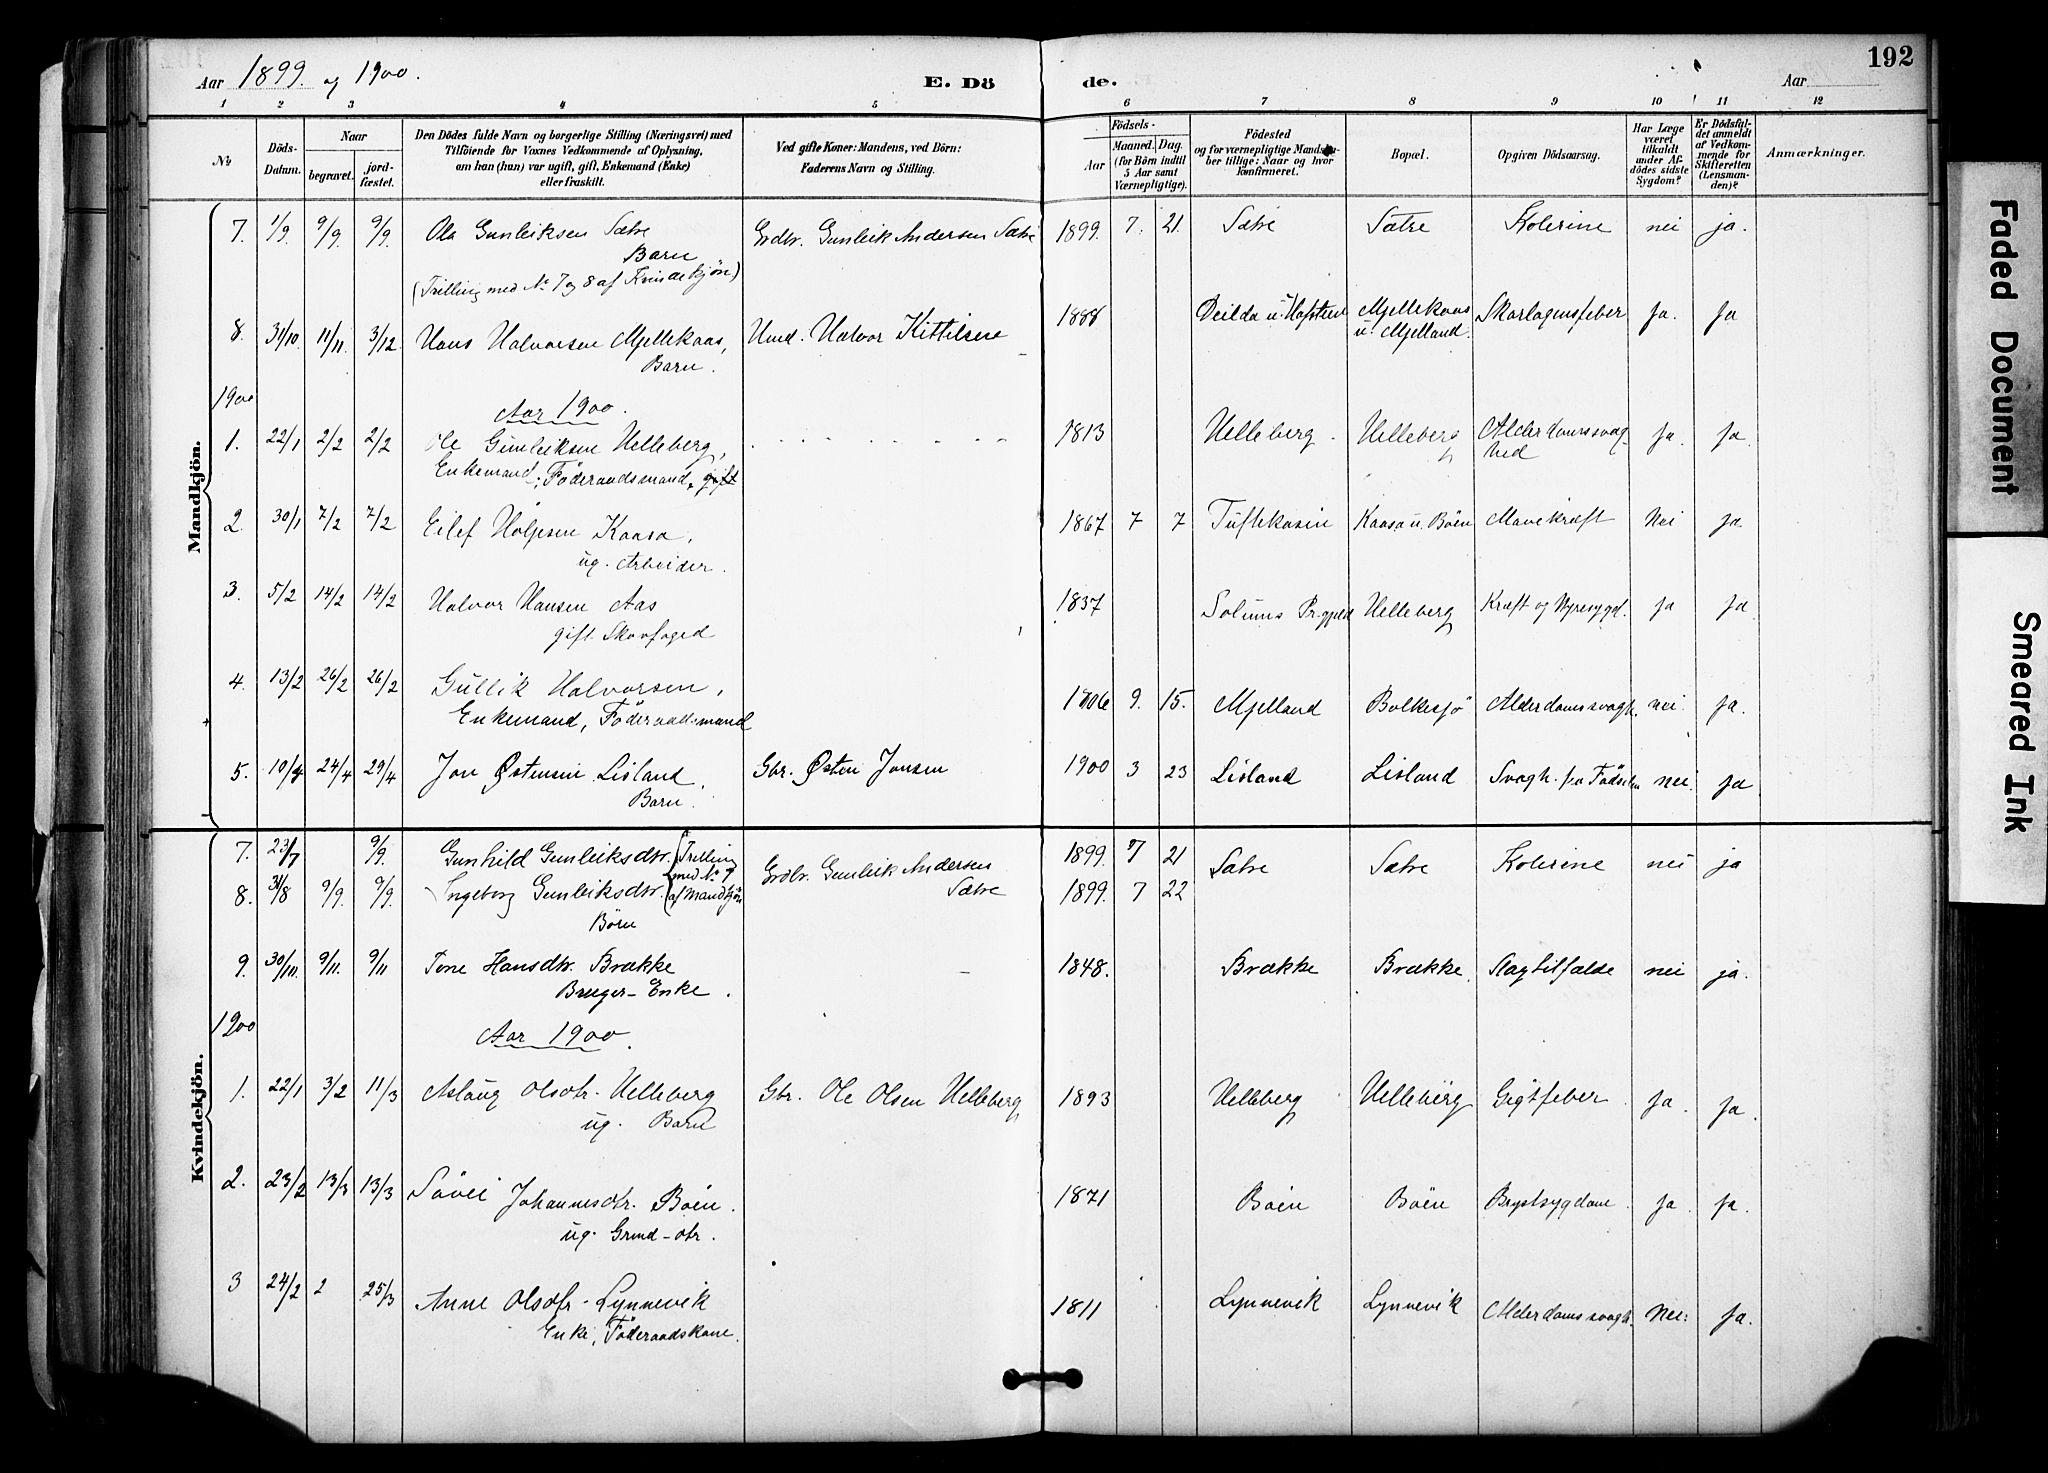 192
Aar 1899. og 1900.
E. Dö de.
Aar
1 2 3 4 5 6 7 8 9 10 11 12
No
Döds-Datum.
Naar
begravet.
jordfæstet.
Den Dödes fulde Navn og borgerlige Stilling (Næringsvei) med
Tilföiende for Voxnes Vedkommende af Oplysning,
om han (hun) var ugift, gift, Enkemand (Enke)
eller fraskilt.
Ved gifte Koner: Mandens, ved Börn:
Faderens Navn og Stilling.
Födsels-
Aar
Maaned. Dag.
(for Börn indtil
5 Aar samt
Værnepligtige).
Födested
og for værnepligtige Mandskaber tillige: Naar og hvor
konfirmeret.
Bopæl.
Opgiven Dödsaarsag.
Har Læge
været
tilkaldt
under Afdödes sidste
Sygdom?
Er Dödsfaldet anmeldt
af Vedkommende for
Skifteretten
(Lensmanden)?
Anmærkninger.
Mandkjön.
7. 1/9. 9/9. 9/9 Ola Gunleiksen Sætre Grdbr. Gunleik Andersen Sætre 1899. 7. 21. Sætre Sætre Kolerine nei ja.
Barn
(Trilling med No 7 og 8 af Kvindekjön)
8. 31/10. 11/11. 3/12. Hans Halvorsen Mjellekaas, Hmd. Halvor Kittilsen 1888 Deilda u. Hafsten Mjellekaas Skarlagensfeber Ja. Ja
Barn. u. Mjelland.
1900
Aar 1900.
1. 22/1 2/2 2/2 Ole Gunleiksen Helleberg, 1813 Helleberg. Helleberg Alderdomssvaghed ja. Ja.
Enkemand, Föderaadsmand, gift
2. 30/1 7/2 7/2 Eilef Holjesen Kaasa, 1867 7 7 Tuftekasin Kaasa u. Böen Mavekræft Nei Ja.
ug. Arbeider.
3. 5/2 14/2 14/2 Halvor Hansen Aas 1837 Solums Pr.gjeld Helleberg Kræft og Nyresygd. ja Ja
gift. Skovfoged
4. 13/2 26/2 26/2 Gullik Halvorsen, 1806 9. 15. Mjelland Bolkesjö Alderdomssvagh. nei. ja.
Enkemand, Föderaadsmand
5. 10/4 24/4 29/4 Jon Østensen Lisland, Gbr. Østen Jonsen 1900 3 23 Lisland Lisland Svagh. fra Födselen nei. ja
Barn.
Kvindekjön.
7. 23/7 9/9. Gunhild Gunleiksdtr. (Trilling Grdbr. Gunleik Andersen 1899. 7 21 Sætre Sætre Kolerine nei ja
med No 7
8. 31/8 9/9. 9/9. Ingeborg Gunleiksdtr. af Mandkjön Sætre 1899. 7 22
Börn
9. 30/10. 9/11. 9/11 Tone Hansdtr. Brække 1848. Brække Brække. Slagtilfælde nei ja.
Bruger-Enke.
1900
Aar 1900.
1. 22/1 3/2 11/3 Aslaug Olsdtr. Helleberg Gbr. Ole Olsen Helleberg 1893 Helleberg Helleberg Gigtfeber. ja. Ja.
ug. Barn
2. 23/2 13/3 13/3 Sövei Johannesdtr. Böen. 1871 Böen Böen Brystsygdom. Ja. Ja.
ug. Grmd-dtr.
3 24/2 2 25/3 Anne Olsdtr. Lynnevik 1811 Lynnevik Lynnevik Alderdomssvagh. Nei: Ja.
Enke, Föderaadskone.
Faded Document
Smeared Ink